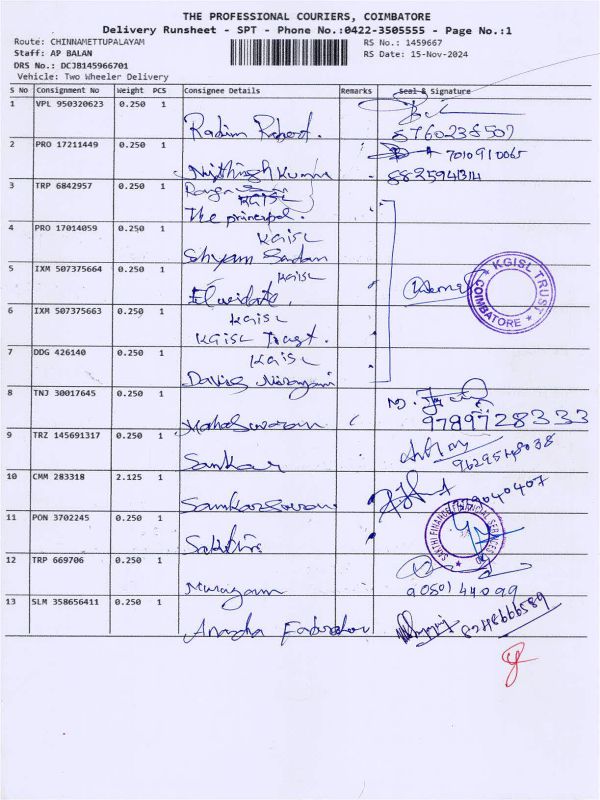 THE PROFESSIONAL COURIERS, COIMBATORE
Delivery Runsheet - SPT - Phone No.:0422-3505555 - Page No.:1
Route: CHINNAMETTUPALAYAM RS No.: 1459667
Staff: AP BALAN RS Date: 15-Nov-2024
DRS No.: DCJB145966701
Vehicle: Two Wheeler Delivery
S No Consignment No Weight PCS Consignee Details Remarks Seal & Signature
1 VPL 950320623 0.250 1
8760238507
2 PRO 17211449 0.250 1
7010910065
Nijthingh Kumar 8825941314
3 TRP 6842957 0.250 1
KGISL
The principal.
4 PRO 17014059 0.250 1
KGISL
Shyam Sundar
5 IXM 507375664 0.250 1
KGISL
Elucidate.
KGISL TRUST
COIMBATORE
6 IXM 507375663 0.250 1
KGISL
KGISL Trust.
7 DDG 426140 0.250 1
KGISL
8 TNJ 30017645 0.250 1
9789728333
Mahaswaran
9 TRZ 145691317 0.250 1
Sankar
10 CMM 283318 2.125 1
11 PON 3702245 0.250 1
12 TRP 669706 0.250 1
Murugan 9050144099
13 SLM 358656411 0.250 1